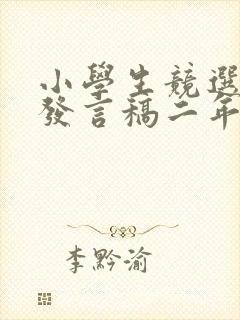 小學生競選
發言稿二年
李黔渝